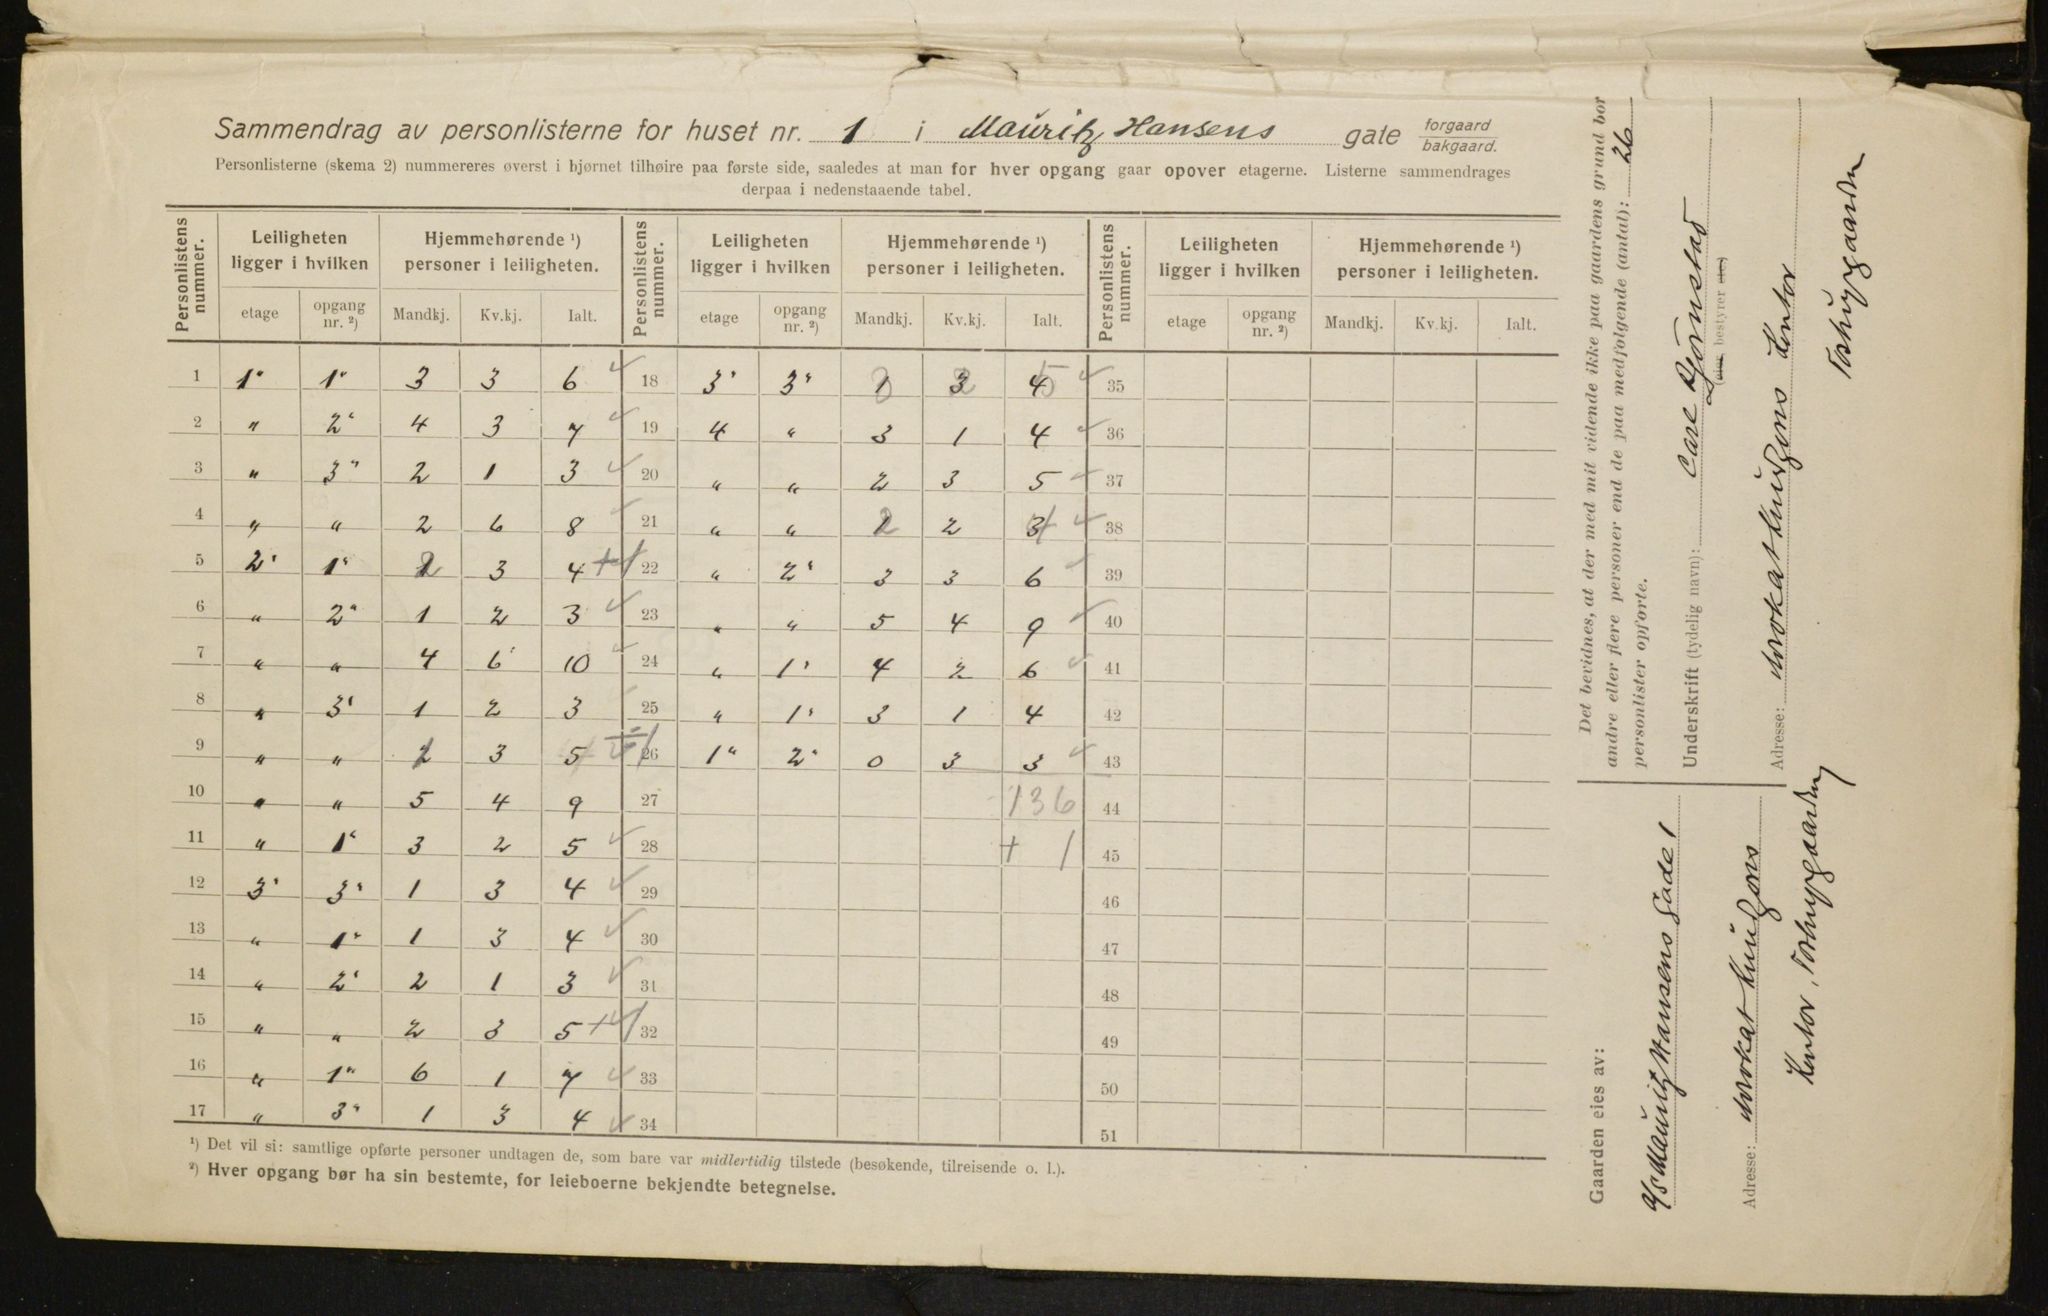 Sammendrag av personlisterne for huset nr. 1 i Mauritz Hansens gate forgaard bakgaard.
Personlisterne (skema 2) nummereres øverst i hjørnet tilhøire paa første side, saaledes at man for hver opgang gaar opover etagerne. Listerne sammendrages
derpaa i nedenstaaende tabel.
Personlistens nummer. Leiligheten ligger i hvilken Hjemmehørende ¹) personer i leiligheten. Personlistens nummer. Leiligheten ligger i hvilken Hjemmehørende ¹) personer i leiligheten. Personlistens nummer. Leiligheten ligger i hvilken Hjemmehørende ¹) personer i leiligheten.
etage opgang nr. ²) Mandkj. Kv.kj. Ialt. etage opgang nr. ²) Mandkj. Kv.kj. Ialt. etage opgang nr. ²) Mandkj. Kv.kj. Ialt.
1 1" 1" 3 3 6 ✓ 18 3" 3" 3 5 ✓ 35
2 " 2" 4 3 7 ✓ 19 4 " 3 1 4 ✓ 36
3 " 3" 2 1 3 ✓ 20 " " 2 3 5 ✓ 37
4 " " 2 6 8 ✓ 21 " " 2 2 4 ✓ 38
5 2" 1" 3 4 +1 22 " 2" 3 3 6 ✓ 39
6 " 2" 1 2 3 ✓ 23 " " 5 4 9 ✓ 40
7 " " 4 6 10 ✓ 24 " 1" 4 2 6 ✓ 41
8 " 3" 1 2 3 ✓ 25 " 1" 3 1 4 42
9 " " 3 5 26 1" 2" 0 3 3 ✓ 43
10 " " 5 4 9 27 136 44
11 " 1" 3 2 5 ✓ 28 + 1 45
12 3" 3" 1 3 4 ✓ 29 46
13 " 1" 1 3 4 ✓ 30 47
14 " 2" 2 1 3 ✓ 31 48
15 " " 2 3 5 +1 32 49
16 " 1" 6 1 7 ✓ 33 50
17 " 3" 1 3 4 ✓ 34 51
¹) Det vil si: samtlige opførte personer undtagen de, som bare var midlertidig tilstede (besøkende, tilreisende o. l.).
²) Hver opgang bør ha sin bestemte, for leieboerne bekjendte betegnelse.
Det bevidnes, at der med mit vidende ikke paa gaardens grund bor
andre eller flere personer end de paa medfølgende (antal): 26
personlister opførte.
Underskrift (tydelig navn): Carl Bjørnstad
(eier bestyrer etc.)
Adresse: Advokat Knudzons Kontor
Tostrupgaarden
Gaarden eies av:
A/S Mauritz Hansens Gade 1
Adresse: Advokat Knudzons
Kontor, Tostrupgaarden